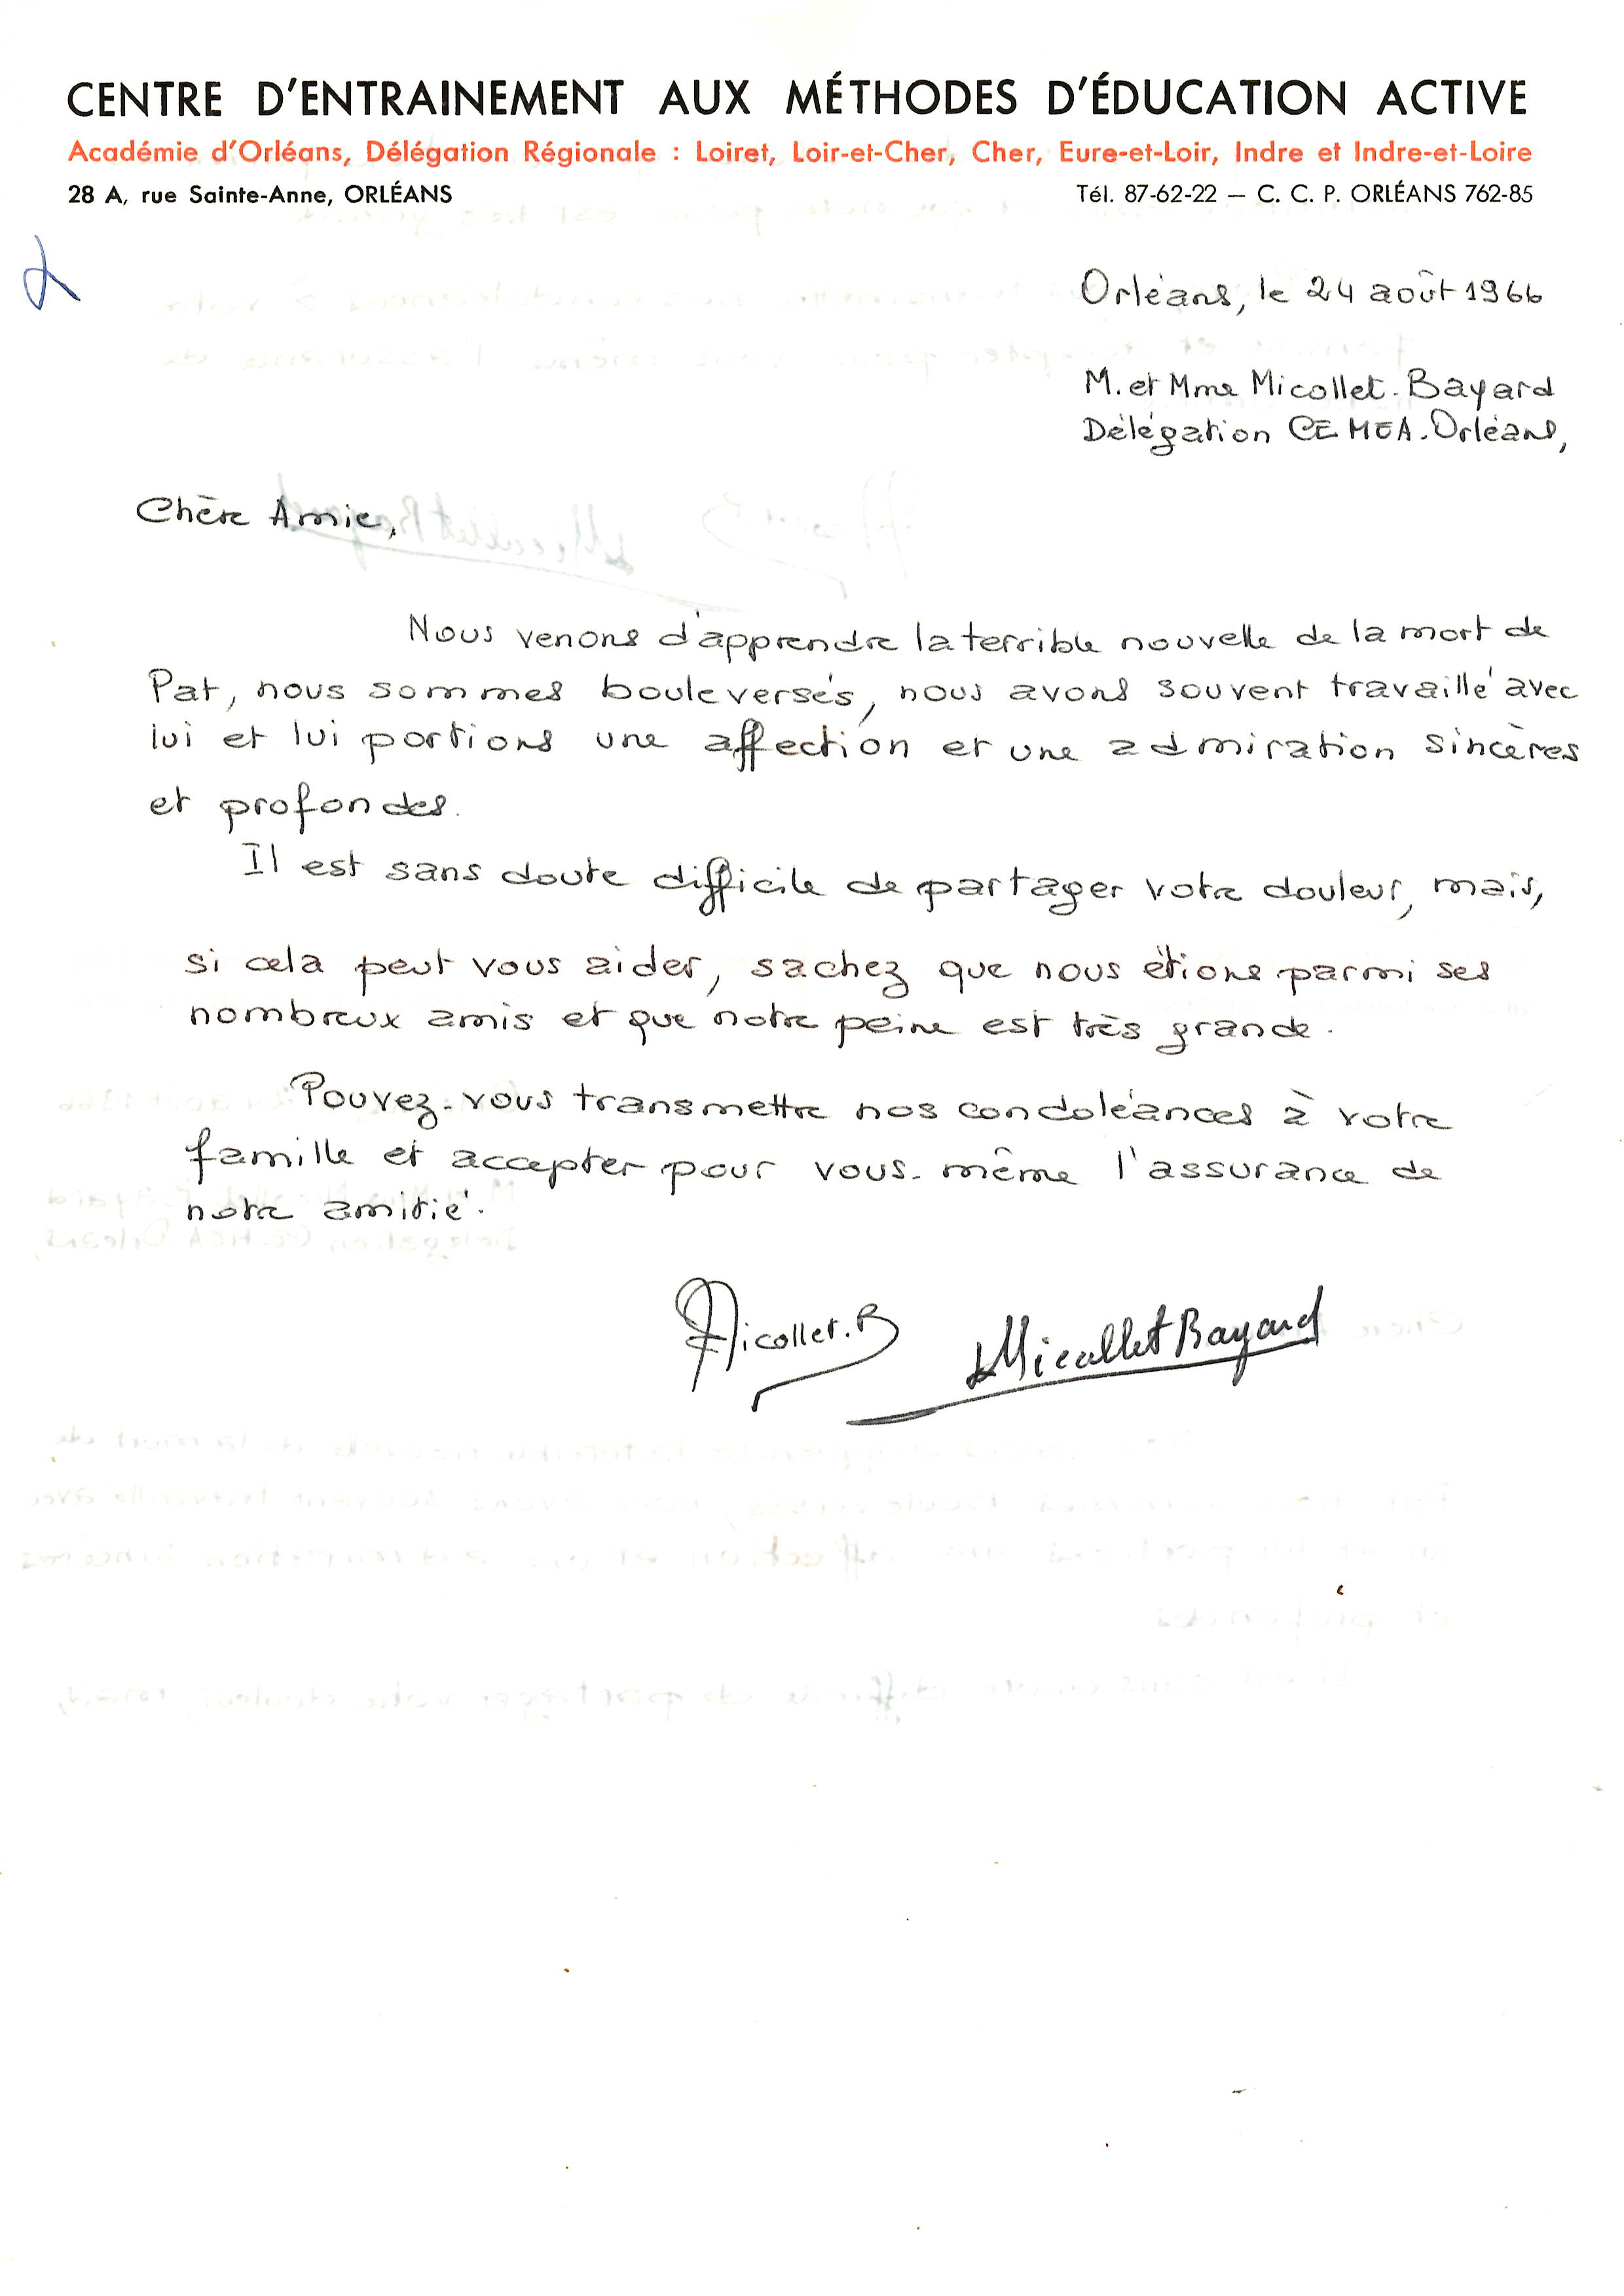 CENTRE D'ENTRAINEMENT AUX MÉTHODES D'ÉDUCATION ACTIVE
Académie d'Orléans, Délégation Régionale : Loiret, Loir-et-Cher, Cher, Eure-et-Loir, Indre et Indre-et-Loire
28 A, rue Sainte-Anne, ORLÉANS Tél. 87-62-22 — C. C. P. ORLÉANS 762-85
Orléans, le 24 août 1966
M. et Mme Micollet-Bayard
Délégation CEMEA-Orléans,
Chère Amie,
Nous venons d'apprendre la terrible nouvelle de la mort de
Pat, nous sommes bouleversés, nous avons souvent travaillé avec
lui et lui portions une affection et une admiration sincères
et profondes.
Il est sans doute difficile de partager votre douleur, mais,
si cela peut vous aider, sachez que nous étions parmi ses
nombreux amis et que notre peine est très grande.
Pouvez-vous transmettre nos condoléances à votre
famille et accepter pour vous-même l'assurance de
notre amitié.
Micollet.B MicolletBayard